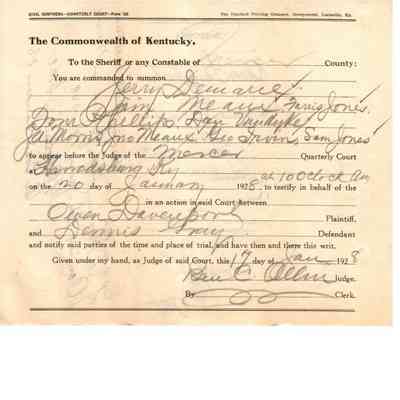 CIVIL SUBPOENA—QUARTERLY COURT—Form
The Commonwealth of Kentucky,
To the Sheriff or any Constable of County:
You are commanded to summon
Jerry Demaree,
Sam Meaux Farris Jones.
Tom Phillips, Dan Vandyke
J.A. Morris, Jno Meaux Geo Irvin, Sam Jones
to appear before the Judge of the Mercer Quarterly Court
Harrodsburg Ky at 10 O'Clock Am
on the 20 day of January 1928, to testify in behalf of the
in an action in said Court Between
Owen Davenport Plaintiff,
and Dennis Defendant
and notify said parties of the time and place of trial, and have then and there this writ.
Given under my hand, as Judge of said Court, this 17 day of Jan 1928
Ben C Allin Judge.
By Clerk.